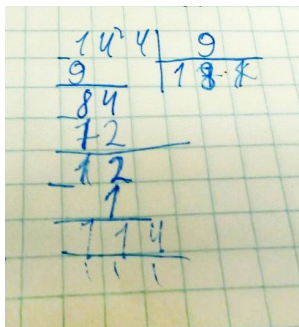 144 9
9 18
84
72
12
1
114
111